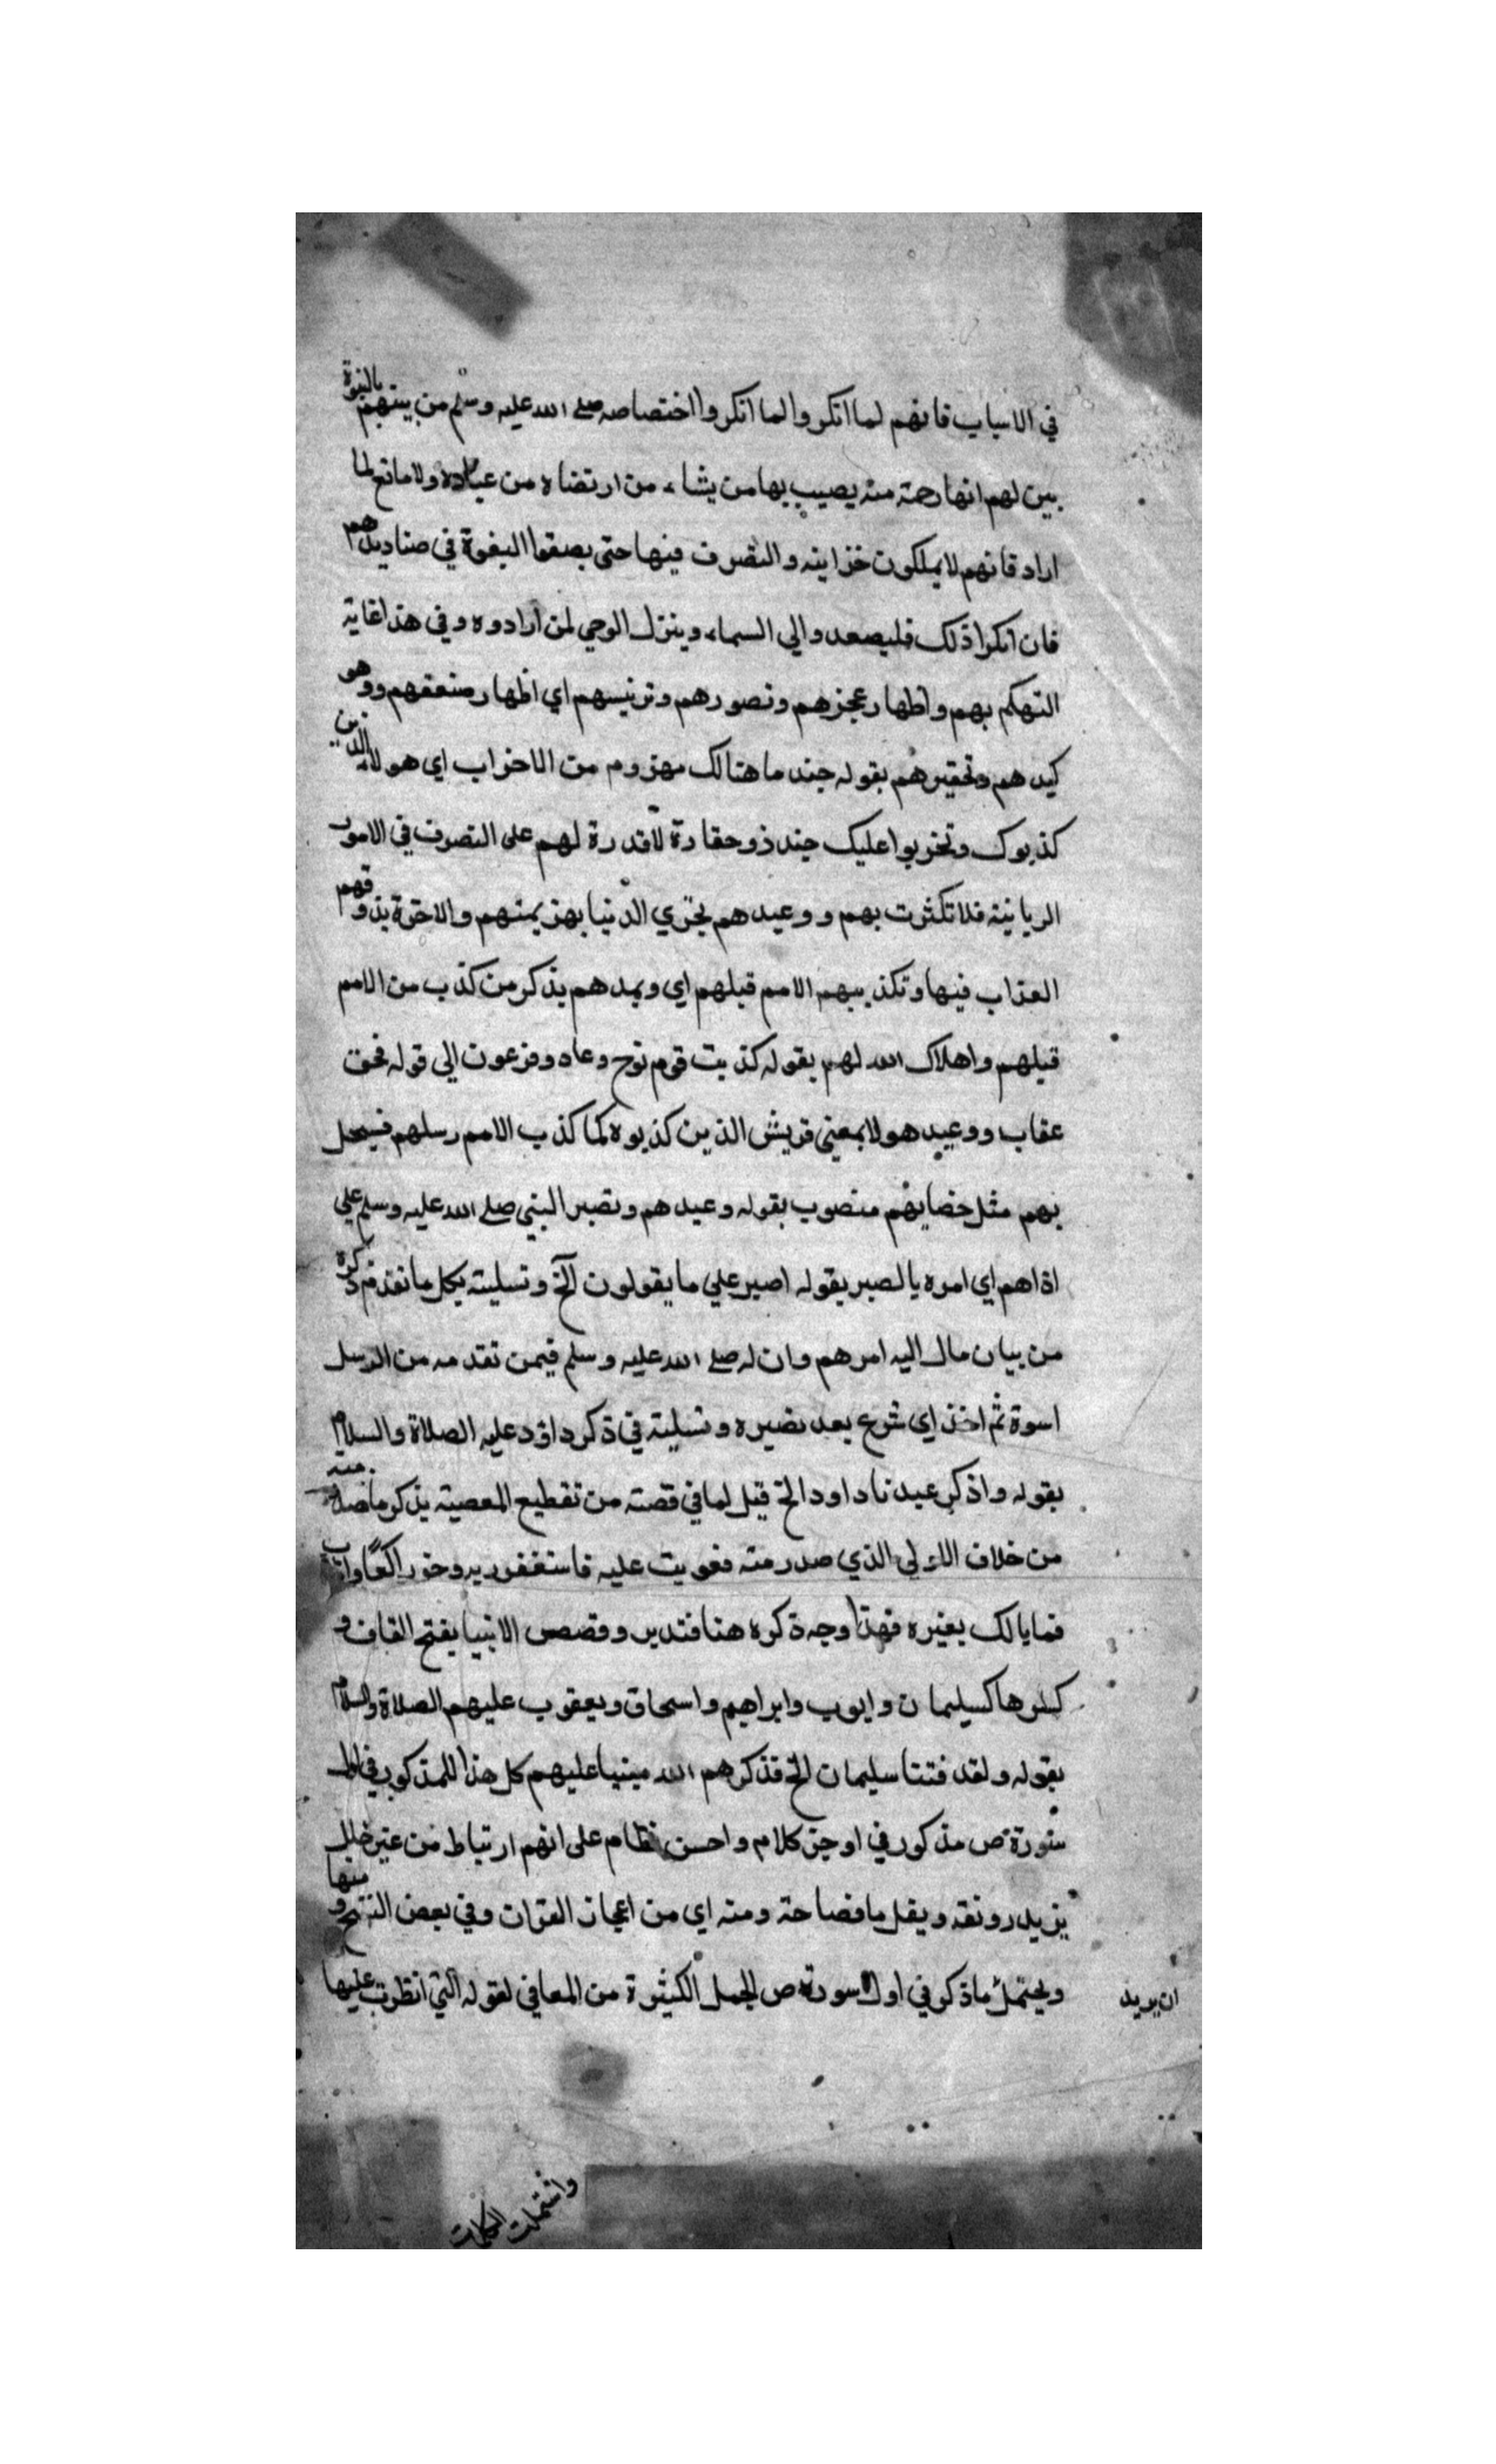 في الاسباب فانهم لما انكروا لما انكروا اختصاصه صلى الله عليه وسلم من بينهم بالنبوة
بين لهم انها رحمة منه يصيب بها من يشاء من ارتضاه من عباده ولا مانع لما
اراد فانهم لا يملكون خزاينه والتصرف فيها حتى يصفوا النبوة في صناديدهم
فان انكروا ذلك فليصعدوا الي السماء وينزل الوحي لمن ارادوه وفي هذا غاية
التهكم بهم واظهار عجزهم وتصورهم وتوهينهم اي اظهار ضعفهم ووهو
كيدهم وتحقيرهم بقوله جند ما هنالك مهزوم من الاحزاب اي هولاء الذين
كذبوك وتحزبوا عليك جند ذو حقارة لا قدرة لهم على التصرف في الامور
الربانية فلا تكترث بهم ووعيدهم بخزي الدنيا بهزيمتهم والاخرة بذوقهم
العذاب فيها وتكذيبهم الامم قبلهم اي وعيدهم بذكر من كذب من الامم
قبلهم واهلاك الله لهم بقوله كذبت قوم نوح وعاد وفرعون الي قوله فحق
عقاب ووعيد هولا بمعني قريش الذين كذبوه كما كذب الامم رسلهم فسيحل
بهم مثل مصابهم منصوب بقوله وعيدهم وتصبير النبي صلى الله عليه وسلم علي
اذاهم اي امره بالصبر بقوله اصبر علي ما يقولون الخ وتسليته بكل ما تقدم ذكره
من بيان مال اليه امرهم وان له صلى الله عليه وسلم فيمن تقدمه من الرسل
اسوة ثم اخذ اي شرع بعد تصبيره وتسليته في ذكر داود عليه الصلاة والسلام
بقوله واذكر عبدنا داود الخ قيل لما في قصته من تفظيع المعصية بذكر ما صدر منه
من خلاف الاولي الذي صدر منه فعوتب عليه فاستغفر ربه وخر راكعا واناب
فما بالك بغيره فهذا وجه ذكره هنا فتدبر وقصص الانبيا بفتح القاف و
كسرها كسليمان وايوب وابراهيم واسحاق ويعقوب عليهم الصلاة والسلام
بقوله ولقد فتنا سليمان الخ فذكرهم الله مبنيا عليهم كل هذا المذكور في اول
سورة ص مذكور في اوجز كلام واحسن نظام على اتم ارتباط من غير خلل
يزيد رونقه ويقل ما فصاحة ومنه اي من اعجاز القران وفي بعض النسخ ومنها
ويحتمل ما ذكر في اول سورة ص الجمل الكثيرة من المعاني لقوله التي انطوت عليها
ان يريد
واشتملت الكلمات